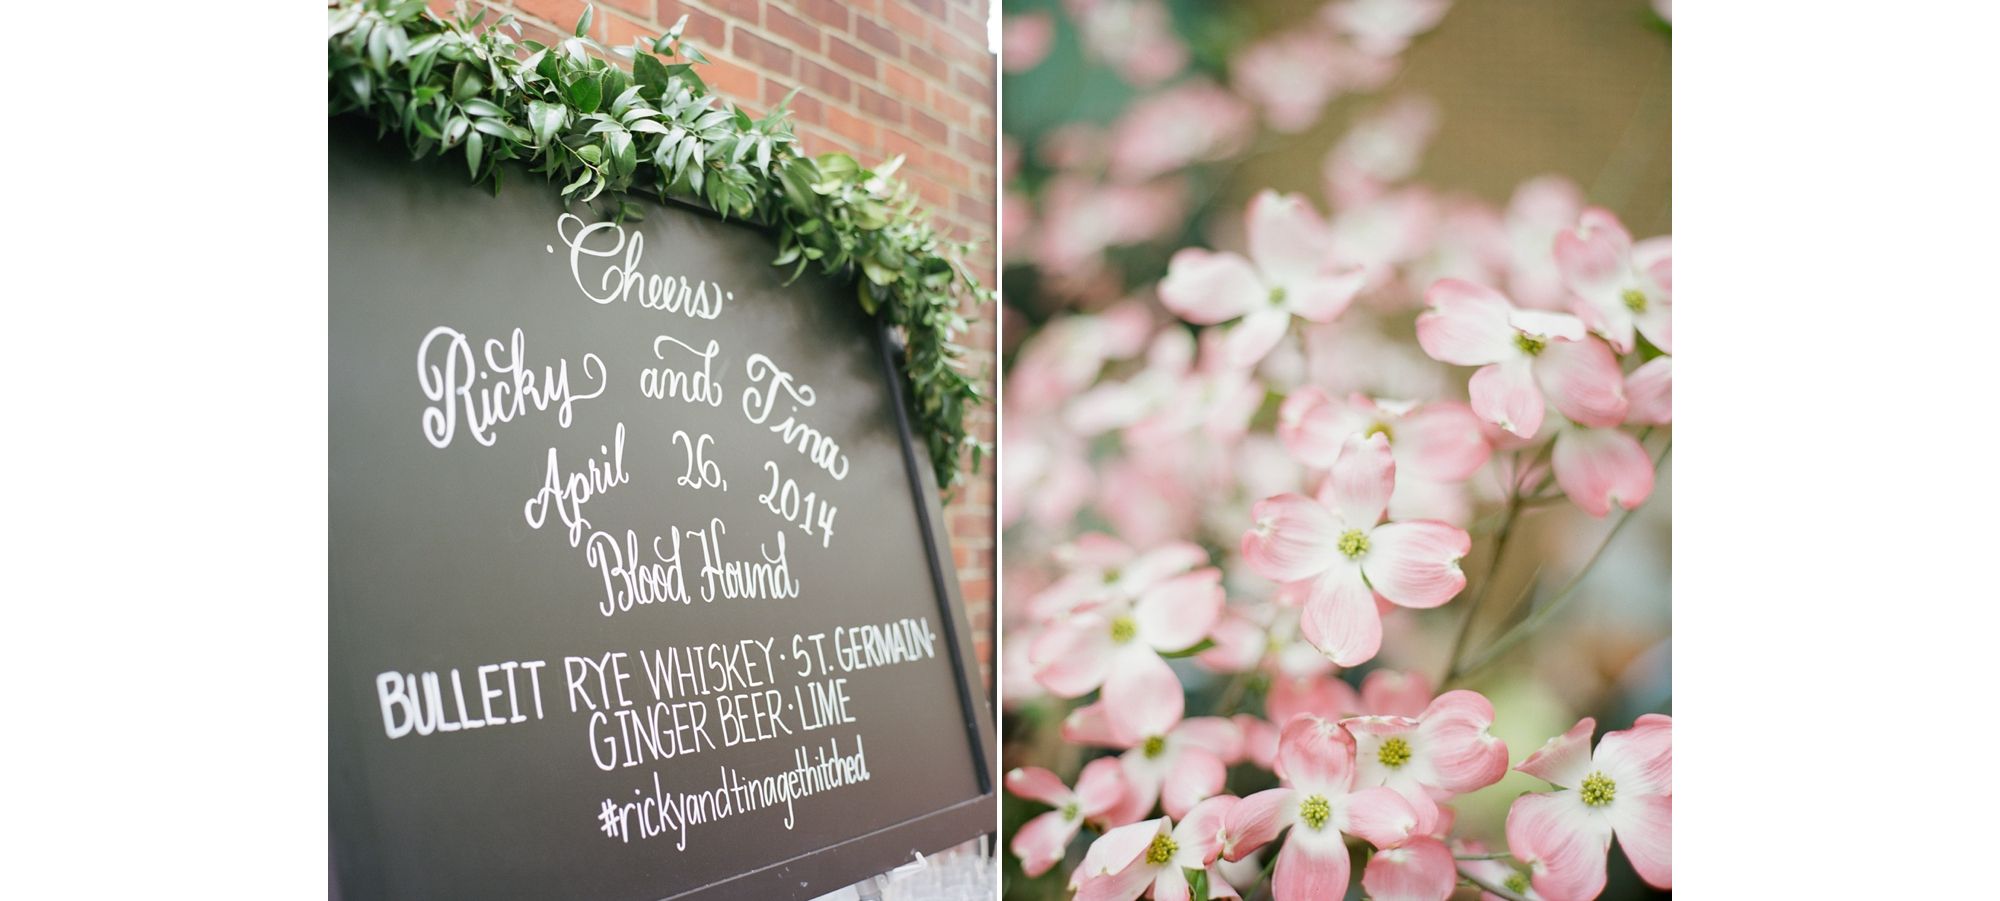 ·Cheers·
Ricky and Tina
April 26, 2014
Blood Hound
BULLEIT RYE WHISKEY · ST. GERMAIN ·
GINGER BEER · LIME
#rickyandtinagethitched